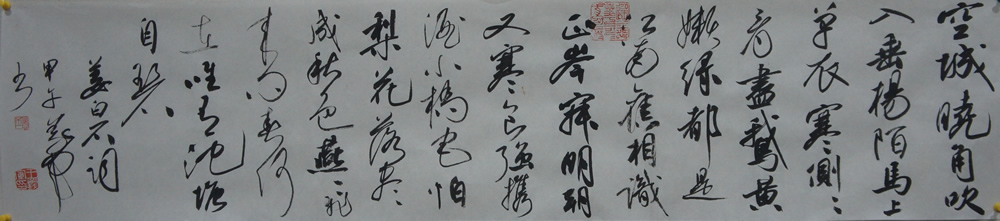 空城曉角吹
入垂楊陌馬上
单衣寒側〻
看盡鵝黄
嫩绿都是
江南舊相識
正岑寂明朝
又寒食强攜
酒小橋宅怕
梨花落尽
成秋色燕〻飛
来问春何
在唯有池塘
自碧
姜白石词
甲午
书